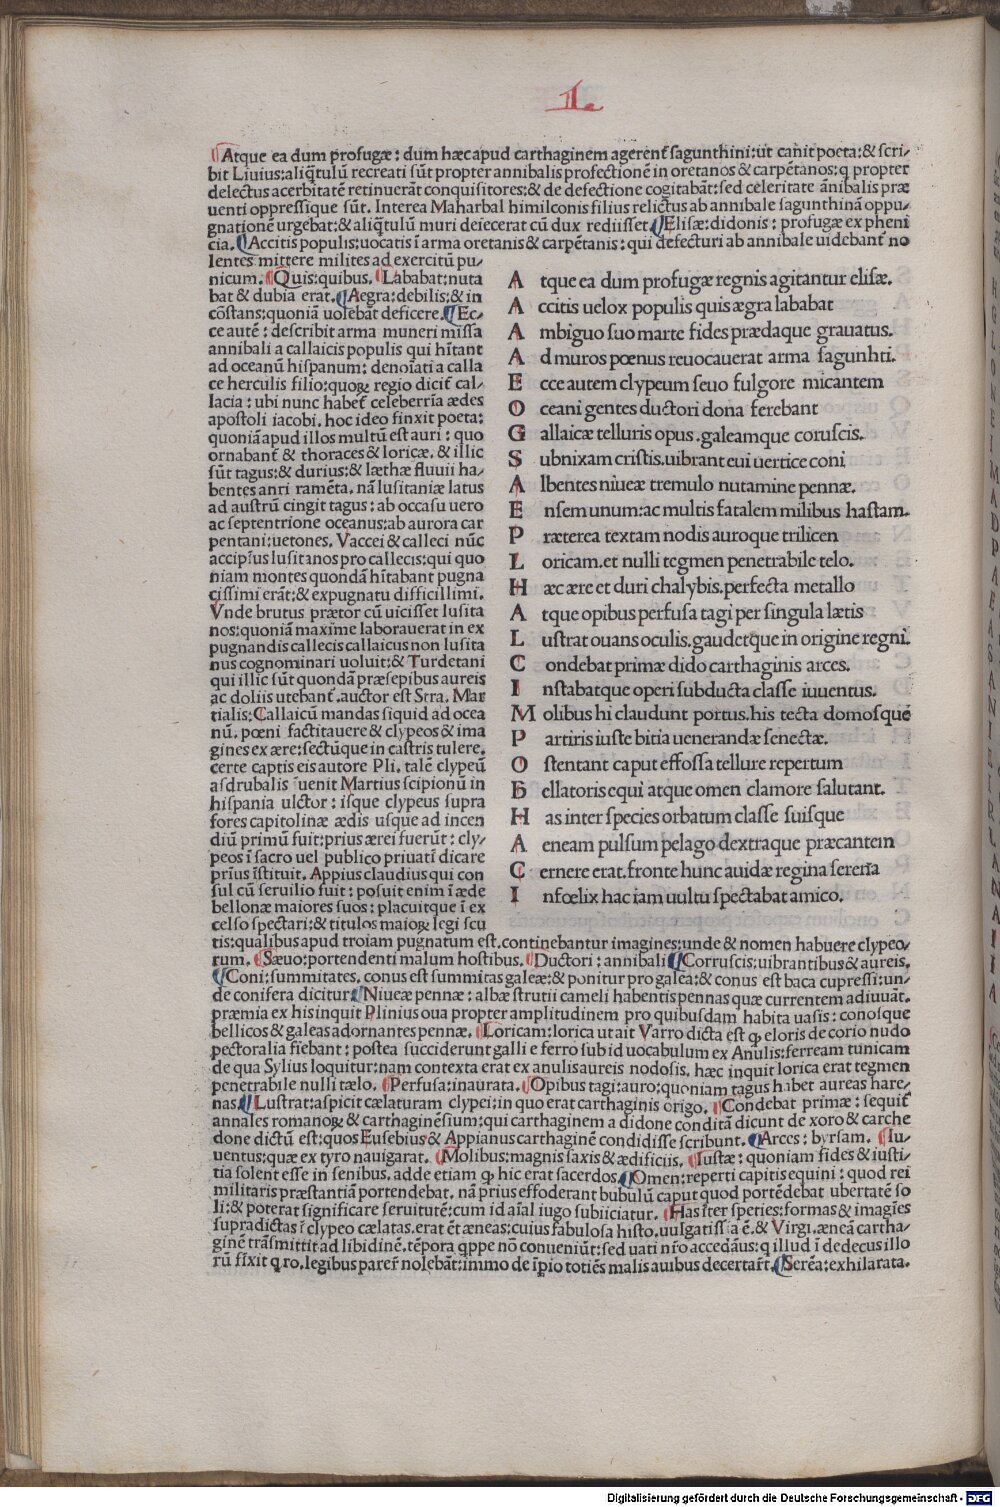 I.
Atque ea dum profugæ: dum hæc apud carthaginem agerent̃ sagunthini: ut canit poeta: & scri-
bit Liuius: aliq̃tulũ recreati sũt propter annibalis profectionẽ in oretanos & carpẽtanos: q propter
delectus acerbitatẽ retinuerãt conquisitores: & de defectione cogitabãt: sed celeritate ãnibalis præ
uenti oppressique sũt. Interea Maharbal himilconis filius relictus ab annibale sagunthinã oppu-
gnationẽ urgebat: & aliq̃tulũ muri deiecerat cũ dux rediisset. Elisæ: didonis: profugæ ex pheni
cia. Accitis populis: uocatis ĩ arma oretanis & carpẽtanis: qui defecturi ab annibale uidebant̃ no
lentes mittere milites ad exercitũ pu-
nicum. Quis: quibus. Lababat: nuta
bat & dubia erat. Aegra: debilis: & in
cõstans: quoniã uolebãt deficere. Ec-
ce autẽ: describit arma muneri missa
annibali a callaicis populis qui hĩtant
ad oceanũ hispanum: denoĩati a calla
ce herculis filio: quoꝝ regio dicit̃ cal-
lacia: ubi nunc habet̃ celeberrĩa ædes
apostoli iacobi. hoc ideo finxit poeta:
quoniã apud illos multũ est auri: quo
ornabant̃ & thoraces & loricæ. & illic
sũt tagus: & durius: & læthæ fluuii ha-
bentes anri ramẽta. nã lusitaniæ latus
ad austrũ cingit tagus: ab occasu uero
ac septentrione oceanus: ab aurora car
pentani: uetones. Vaccei & calleci nũc
accipĩus lusitanos pro callecis: qui quo
niam montes quondã hĩtabant pugna
cissimi erãt: & expugnatu difficillimi.
Vnde brutus prætor cũ uicisset lusita
nos: quoniã maxime laborauerat in ex
pugnandis callecis callaicus non lusita
nus cognominari uoluit: & Turdetani
qui illic sũt quondã præsepibus aureis
ac doliis utebant̃. auctor est Stra. Mar
tialis: Callaicũ mandas siquid ad ocea
nũ. pœni factitauere & clypeos & ima
gines ex ære: sectũque in castris tulere.
certe captis eis autore Pli. talẽ clypeũ
asdrubalis ĩuenit Martius scipionũ in
hispania ulctor: isque clypeus supra
fores capitolinæ ædis usque ad incen
diũ primũ fuit: prius ærei fuerũt: cly-
peos ĩ sacro uel publico priuatĩ dicare
prĩus ĩstituit. Appius claudius qui con
sul cũ seruilio fuit: posuit enim ĩ æde
bellonæ maiores suos: placuitque ĩ ex
celso spectari: & titulos maioꝝ legi scu
A tque ea dum profugæ regnis agitantur elisæ.
A ccitis uelox populis quis ægra lababat
A mbiguo suo marte fides prædaque grauatus.
A d muros pœnus reuocauerat arma sagunhti.
E cce autem clypeum seuo fulgore micantem
O ceani gentes ductori dona ferebant
G allaicæ telluris opus. galeamque coruscis.
S ubnixam cristis. uibrant cui uertice coni
A lbentes niueæ tremulo nutamine pennæ.
E nsem unum: ac multis fatalem milibus hastam.
P ræterea textam nodis auroque trilicen
L oricam. et nulli tegmen penetrabile telo.
H æc ære et duri chalybis. perfecta metallo
A tque opibus perfusa tagi per singula lætis
L ustrat ouans oculis. gaudetque in origine regni.
C ondebat primæ dido carthaginis arces.
I nstabatque operi subducta classe iuuentus.
M olibus hi claudunt portus. his tecta domosque
P artiris iuste bitia uenerandæ senectæ.
O stentant caput effossa tellure repertum
B ellatoris equi atque omen clamore salutant.
H as inter species orbatum classe suisque
A eneam pulsum pelago dextraque præcantem
C ernere erat. fronte hunc auidæ regina serena
I nfœlix hac iam uultu spectabat amico.
tis: qualibus apud troiam pugnatum est. continebantur imagines: unde & nomen habuere clypeo-
rum. Sæuo: portendenti malum hostibus. Ductori: annibali. Corruscis: uibrantibus & aureis.
Coni: summitates. conus est summitas galeæ: & ponitur pro galea: & conus est baca cupressi: un-
de conifera dicitur. Niueæ pennæ: albæ strutii cameli habentis pennas quæ currentem adiuuãt.
præmia ex his inquit Plinius oua propter amplitudinem pro quibusdam habita uasis: conosque
bellicos & galeas adornantes pennæ. Loricam: lorica ut ait Varro dicta est ꝙ eloris de corio nudo
pectoralia fiebant: postea succiderunt galli e ferro sub id uocabulum ex Anulis: ferream tunicam
de qua Sylius loquitur: nam contexta erat ex anulis aureis nodosis. hæc inquit lorica erat tegmen
penetrabile nulli tælo. Perfusa: inaurata. Opibus tagi: auro: quoniam tagus habet aureas hare-
nas. Lustrat: aspicit cælaturam clypei: in quo erat carthaginis origo. Condebat primæ: sequit̃
annales romanoꝝ & carthaginẽsium: qui carthaginem a didone conditã dicunt de xoro & carche
done dictũ est: quos Eusebius & Appianus carthaginẽ condidisse scribunt. Arces: byrsam. Iu-
uentus: quæ ex tyro nauigarat. Molibus: magnis saxis & ædificiis. Iustæ: quoniam fides & iusti-
tia solent esse in senibus. adde etiam ꝙ hic erat sacerdos. Omen: reperti capitis equini: quod rei
militaris præstantiã portendebat. nã prius effoderant bubulũ caput quod portẽdebat ubertatẽ so
li: & poterat significare seruitutẽ: cum id aĩal iugo subiiciatur. Has ĩter speties: formas & imagĩes
supradictas ĩ clypeo cælatas. erat ẽt æneas: cuius fabulosa histo. uulgatissĩa ẽ. & Virgi. æneã cartha-
ginẽ trãsmittit ad libidinẽ. tẽpora qppe nõ conueniũt: sed uati nr̃o accedãus: q illud ĩ dedecus illo
rũ fĩxit q ro. legibus parer̃ nolebãt: immo de ĩpio totiẽs malis auibus decertar̃t. Serẽa: exhilarata.
Digitalisierung gefördert durch die Deutsche Forschungsgemeinschaft - DFG